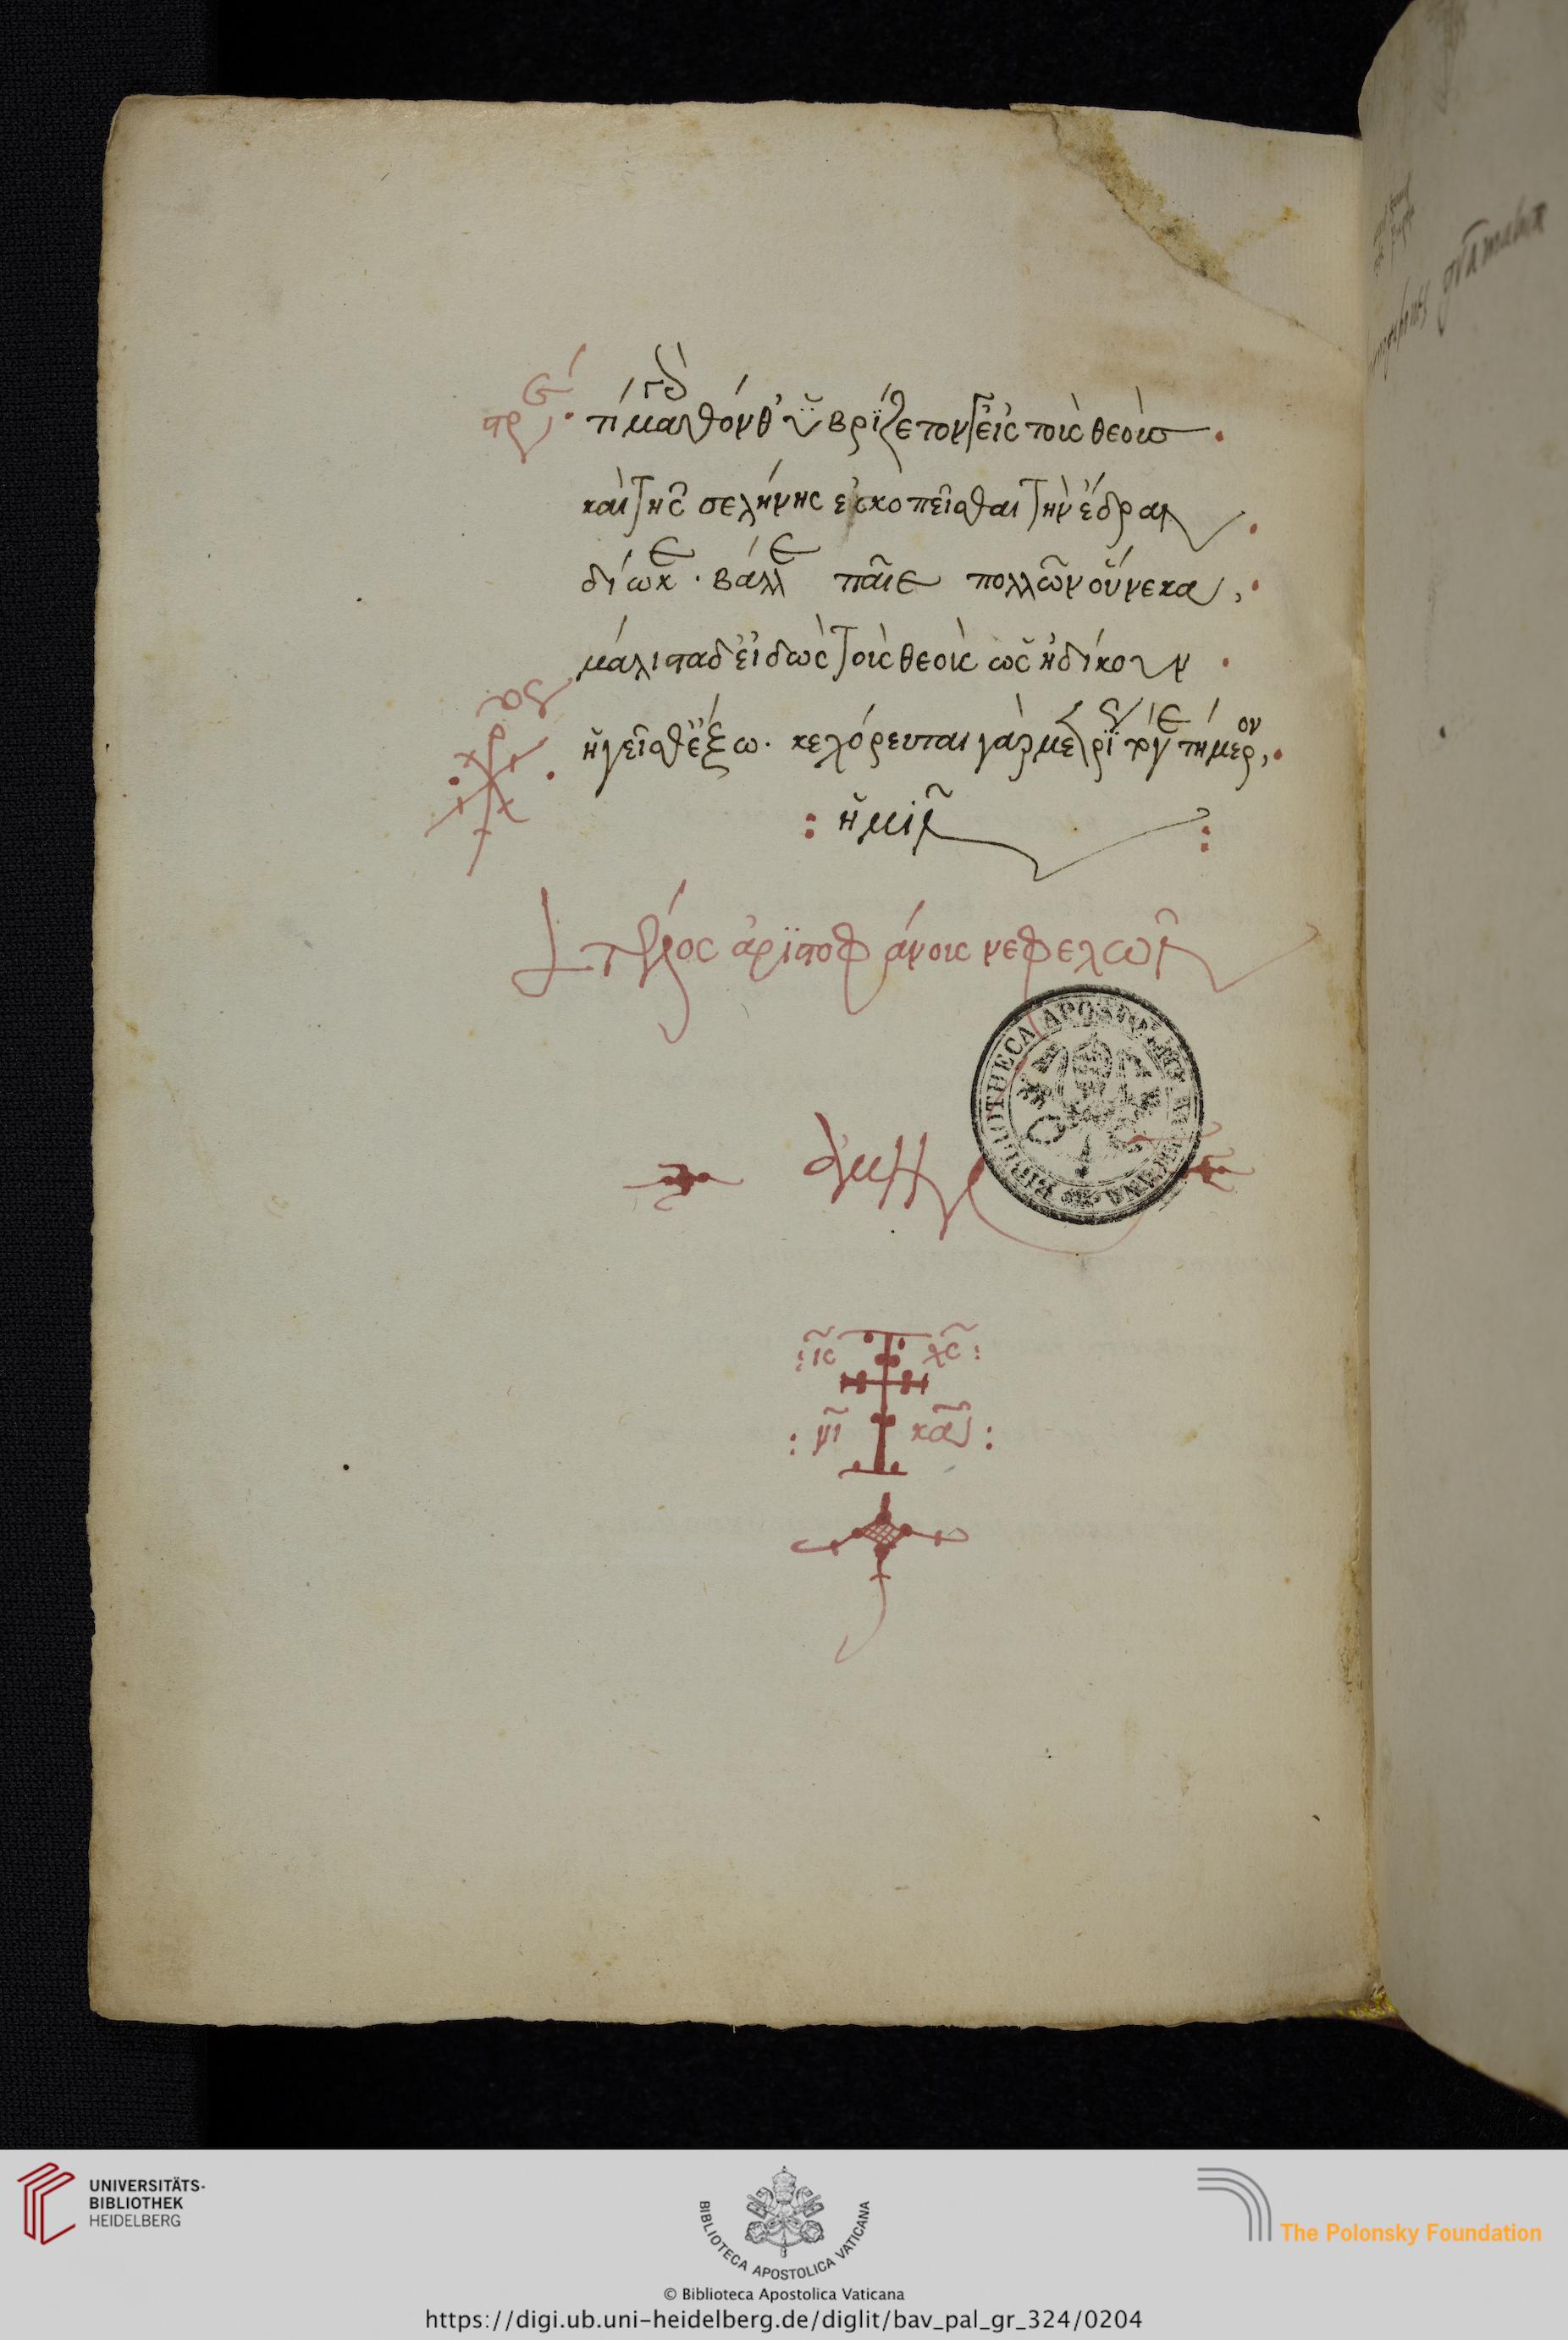 τί γὰρ μαθόνθ' ὑβρίζετον εἰς τοὺς θεοὺς.
καὶ τῆς σελήνης ἐσκοπεῖσθαι τὴν ἕδραν.
δίωκε· βάλλε παῖε πολλῶν οὕνεκα,
μάλιστα δ' εἰδὼς τοὺς θεοὺς ὡς ἠδίκουν.
χορός
ἡγεῖσθ' ἔξω· κεχόρευται γὰρ μετρίως τό γε τήμερον,
: ἡμῖν :
τέλος ἀριστοφάνους νεφελῶν
ἀμήν
ις χς
νι κα
BIBLIOTHECA APOSTOL VATICANA
UNIVERSITÄTS-
BIBLIOTHEK
HEIDELBERG
BIBLIOTECA APOSTOLICA VATICANA
The Polonsky Foundation
© Biblioteca Apostolica Vaticana
https://digi.ub.uni-heidelberg.de/diglit/bav_pal_gr_324/0204